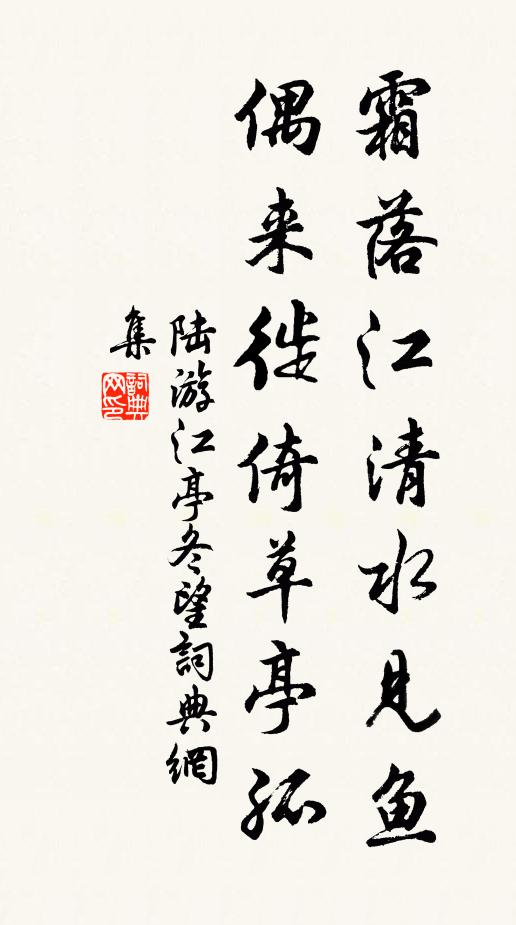 霜落江清水見鱼
偶来徙倚草亭孤
陆游江亭冬望詞典網
集
詞典
网印